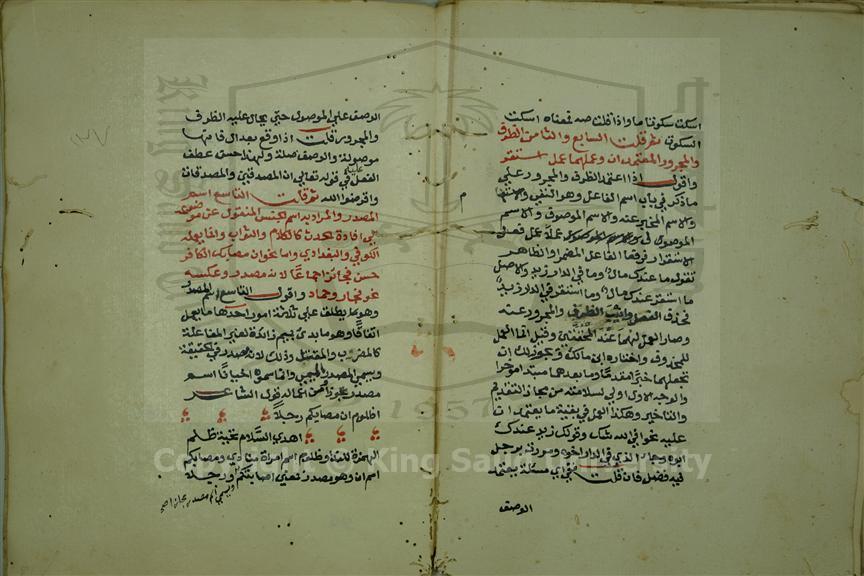 اسكت سكوتا ما واذا قلت صه فمعناه اسكت
السكوت ثم قلت السابع والثامن الظرف
والمجرور المعتمدان وعملهما عمل استقر
واقول اذا اعتمد الظرف والمجرور على
ما ذكر في باب اسم الفاعل وهو النفي والاستفهام
والاسم المخبر عنه والاسم الموصوف والاسم
الموصول عملا عمل فعل
الاستقرار فرفعا الفاعل المضمر او الظاهر
تقول ما عندك مال وما في الدار زيد والاصل
ما استقر عندك مال وما استقر في الدار زيد
فحذف الفعل وانيب الظرف والمجرور عنه
وصار العمل لهما عند المحققين وقيل انما العمل
للمحذوف واختاره ابن مالك ويجوز لك ان
تجعلهما خبرا مقدما وما بعدهما مبتدا مؤخرا
والوجه الاول اولى لسلامته من مجاز التقديم
والتاخير وهكذا العمل في بقية ما يعتمدان
عليه نحو افي الله شك وقولك زيد عندك
ابوه وجاء الذي في الدار اخوه ومررت برجل
فيه فضل فان قلت ففي اي مسئلة يعتمد
الوصف
الوصف على الموصول حتى يحال عليه الظرف
والمجرور قلت اذا وقع بعد ال فانها
موصولة والوصف صلة ولهذا حسن عطف
الفعل عليه في قوله تعالى ان المصدقين والمصدقات
واقرضوا الله ثم قلت التاسع اسم
المصدر والمراد به اسم الجنس المنقول عن موضوعه
الى افادة الحدث كالكلام والثواب وانما يعمله
الكوفي والبغدادي واما نحو ان مصابك الكافر
حسن فجائز اجماعا لانه مصدر وعكسه
نحو فجار وحماد واقول التاسع اسم المصدر
وهو يطلق على ثلاثة امور احدها ما يعمل
اتفاقا وهو ما بدئ بميم زائدة لغير المفاعلة
كالمضرب والمقتل وذلك لانه مصدر في الحقيقة
ويسمى المصدر الميمي وانما سموه احيانا اسم
مصدر تجوزا ومن اعماله قول الشاعر
اظلوم ان مصابكم رجلا
اهدى السلام تحية ظلم
الهمزة للنداء وظلوم اسم امراة منادى ومصابكم
اسم ان وهو مصدر بمعنى اصابتكم ورجلا
ويسمى اسم مصدر مجازا